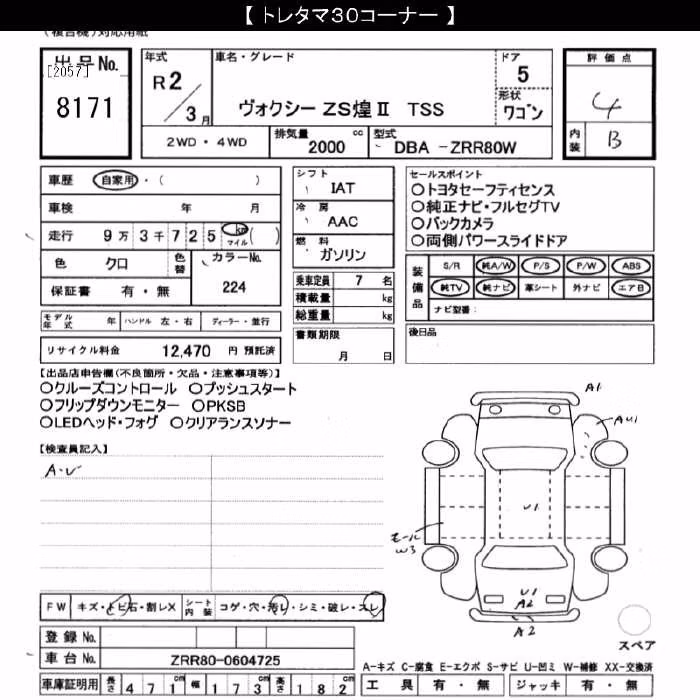 【 トレタマ30コーナー 】
(複合機)対応用紙
出品No.
[2057]
8171
年式
R2/3月
車名・グレード
ヴォクシー ZS煌Ⅱ TSS
ドア
5
形状
ワゴン
評価点
4
内装
B
2WD・4WD
排気量
2000
cc
型式
DBA -ZRR80W
車歴 自家用・( )
車検 年 月
走行 9万3千725 km マイル ( )
色 クロ
色替
カラーNo.
224
保証書 有・無
シフト
IAT
冷房
AAC
燃料
ガソリン
乗車定員 7 名
積載量 kg
総重量 kg
書類期限
月 日
セールスポイント
○トヨタセーフティセンス
○純正ナビ・フルセグTV
○バックカメラ
○両側パワースライドドア
装備品
S/R 純A/W P/S P/W ABS
純TV 純ナビ 革シート 外ナビ エアB
ナビ型番:
モデル年式 年 ハンドル 左・右 ディーラー・並行
リサイクル料金 12,470 円 預託済
後日品
【出品店申告欄(不良箇所・欠品・注意事項等)】
○クルーズコントロール ○プッシュスタート
○フリップダウンモニター ○PKSB
○LEDヘッド・フォグ ○クリアランスソナー
【検査員記入】
A・U
A1
AU1
U1
モール
W3
U1
A2
A2
スペア
FW キズ・トビ石・割レX シート内装 コゲ・穴・汚レ・シミ・破レ・スレ
登録No.
車台No. ZRR80-0604725
A-キズ C-腐食 E-エクボ S-サビ U-凹ミ W-補修 XX-交換済
車庫証明用 長さ 471cm 幅 173cm 高さ 182cm
工具 有・無 ジャッキ 有・無